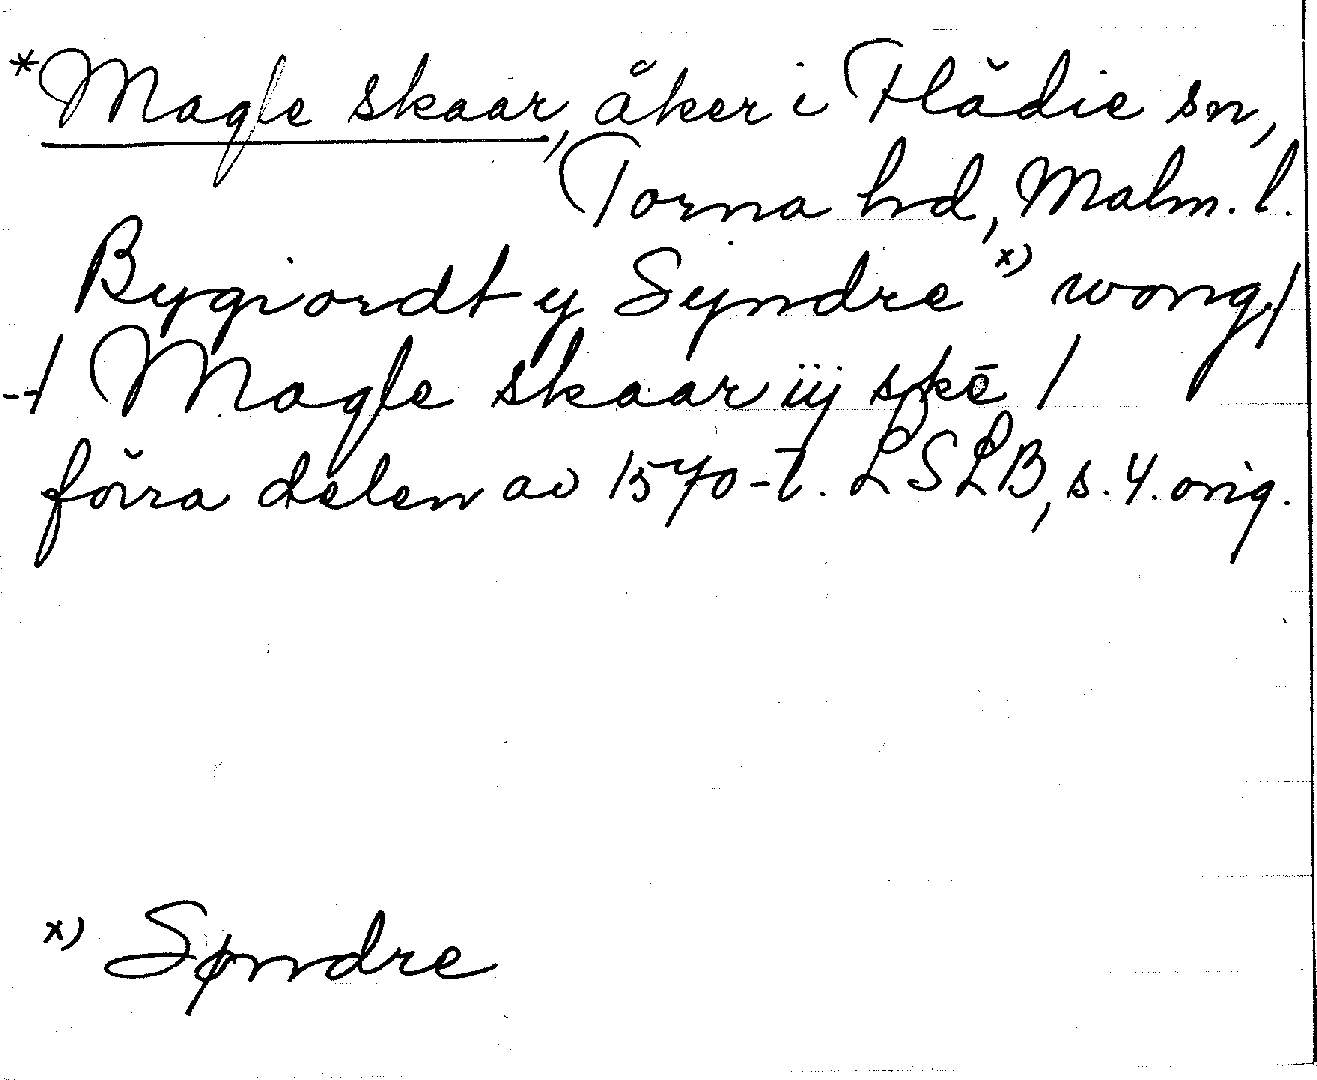 *Magle skaar, åker i Flädie sn,
Torna hd, Malm. l.
Bygiordt y Syndre x) wong/
-/ Magle skaar iij skē /
förra delen av 1570-t. LSLB, s. 4. orig.
x) Søndre